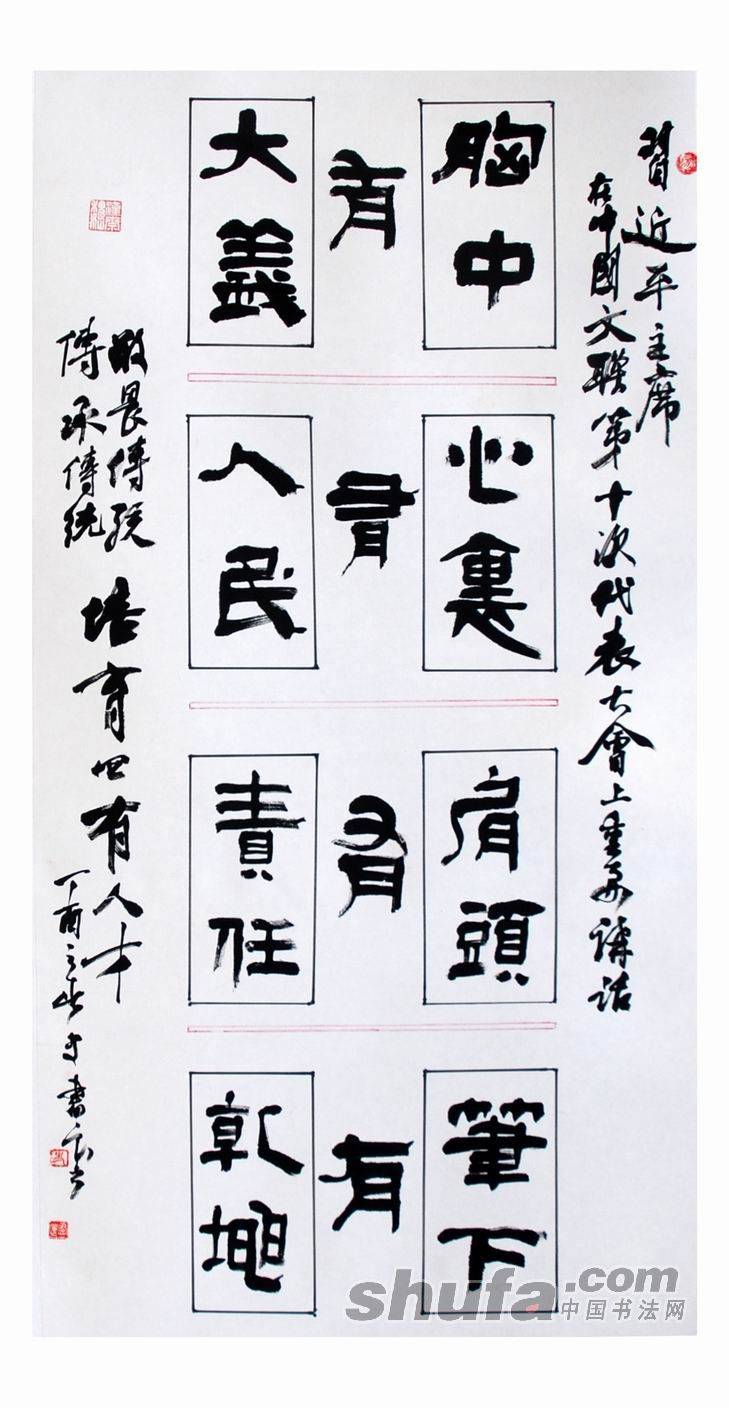 習近平主席
在中國文聯第十次代表大會上重要講話
胸中有大義
心裏有人民
肩頭有責任
筆下有乾坤
敬畏傳統
傳承傳統
培育四有人才
丁酉之
shufa.com
中国书法网